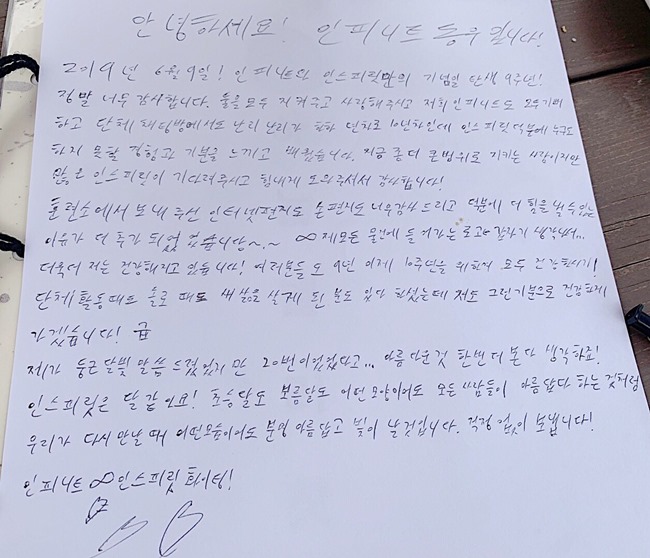 안녕하세요! 인피니트 동우입니다!
2019년 6월 9일! 인피니트와 인스피릿만의 기념일 탄생 9주년!
정말 너무 감사합니다. 둘을 모두 지켜주고 사랑해주시고 저희 인피니트도 모두 기뻐
하고 단체 채팅방에서도 난리 난리가 햇수 년차로 10년차인데 인스피릿 덕분에 누구도
하지 못할 경험과 기분을 느끼고 배웠습니다. 지금 좀 더 큰 범위로 지키는 사랑이지만
많은 인스피릿이 기다려주시고 힘내게 도와주셔서 감사합니다!
훈련소에서 보내주신 인터넷편지도 손편지도 너무 감사드리고 덕분에 더 힘을 낼 수 있는
이유가 더 추가 되었었습니당~.~ ∞ 제 모든 물건에 들어가는 로고 갑자기 생각나서...
더욱더 저는 건강해지고 있습니다! 여러분들도 9년 이제 10주년을 위해서 모두 건강하시기!
단체 활동때도 솔로 때도 새 삶을 살게 된 분도 있다 하셨는데 저도 그런기분으로 건강하게
가겠습니다! 굽
제가 둥근 달빛 말씀 드렸었지만 20번이었었다고... 아름다운 것 한번 더 본다 생각하죠!
인스피릿은 달 같아요! 초승달도 보름달도 어떤 모양이어도 모든 사람들이 아름답다 하는 것처럼
우리가 다시 만날 때 어떤모습이어도 분명 아름답고 빛이 날것입니다. 걱정 없이 보냅니다!
인피니트 ∞ 인스피릿 화이팅!